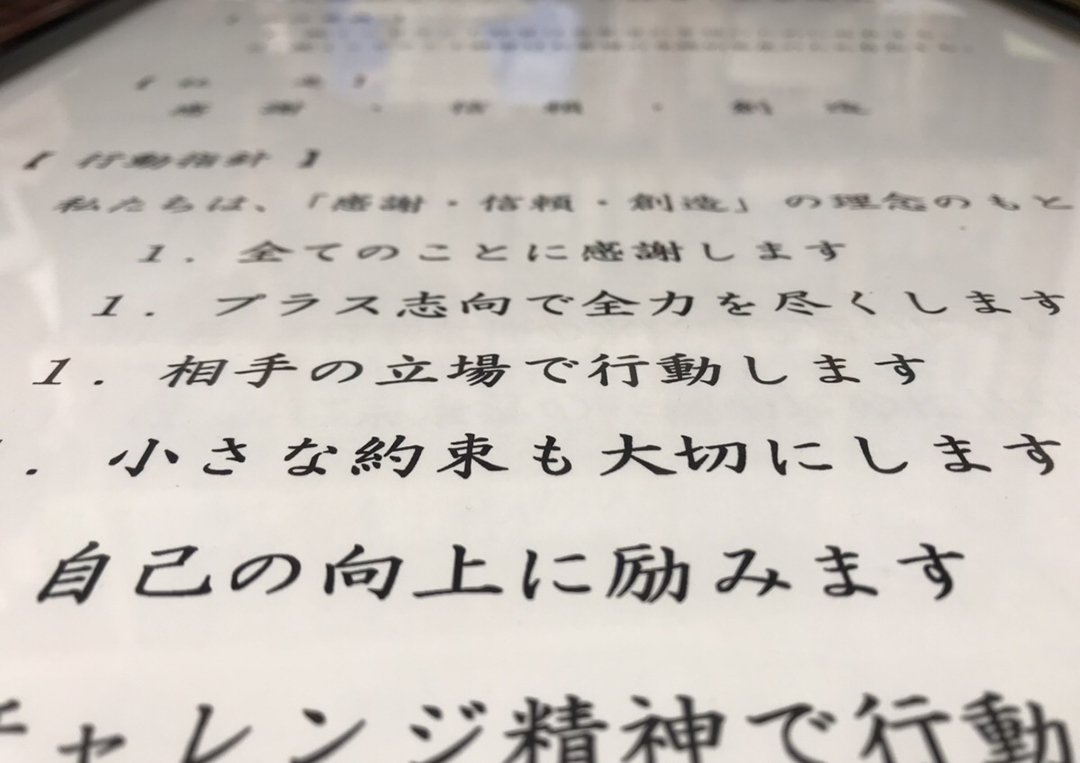 感謝・信頼・創造
【行動指針】
私たちは、「感謝・信頼・創造」の理念のもと
1. 全てのことに感謝します
1. プラス志向で全力を尽くします
1. 相手の立場で行動します
. 小さな約束も大切にします
自己の向上に励みます
チャレンジ精神で行動